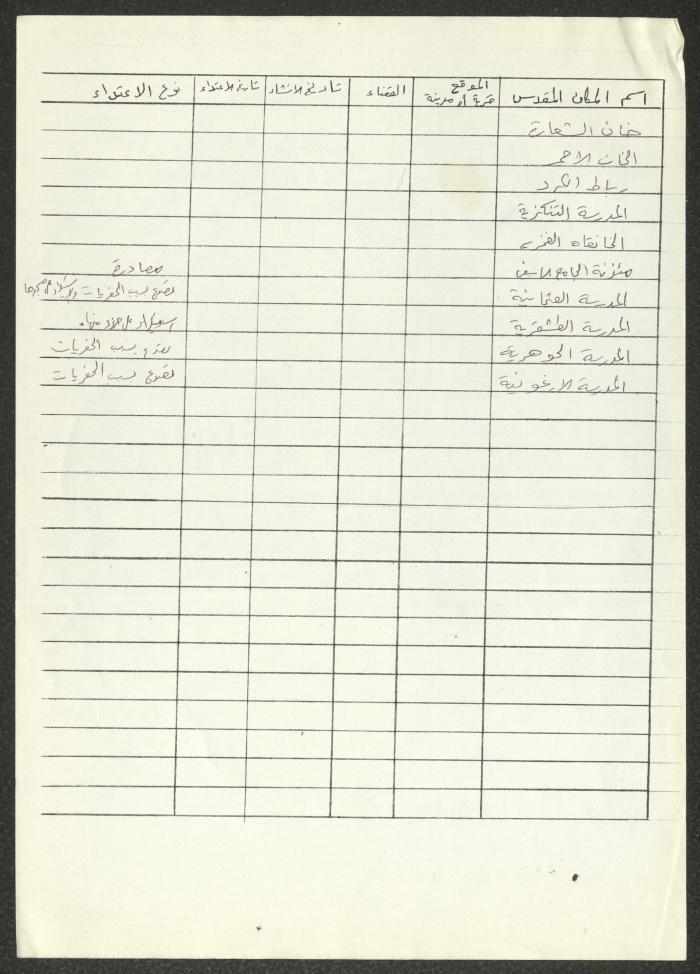 اسم المكان المقدس الموقع قرية أو مدينة القضاء تاريخ الانشاء تاريخ الاعتداء نوع الاعتداء
خان الشعارة
الخان الاحمر
رباط الكرد
المدرسة التنكزية
الخانقاه الفخرية
مئذنة الجامع مصادرة
المدرسة العثمانية تصدع بسبب الحفريات
المدرسة الطشتمرية استيلاء على جزء منها
المدرسة الجوهرية تصدع بسبب الحفريات
المدرسة الارغونية تصدع بسبب الحفريات